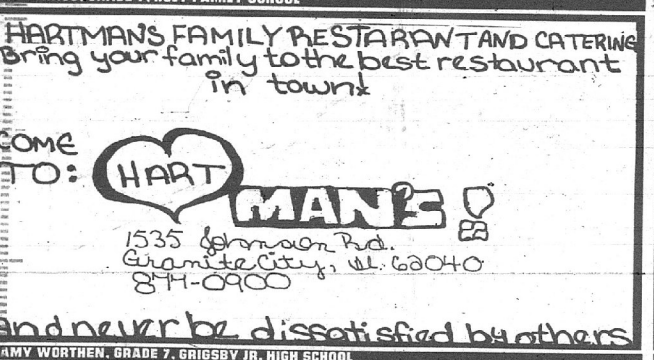 HARTMAN'S FAMILY RESTARANT AND CATERING
Bring your family to the best restaurant
in town!
OME
TO:
HART
MAN'S!
1535 Johnson Rd.
Granite City, IL. 62040
877-0900
and never be dissatisfied by others
AMY WORTHEN, GRADE 7, GRIGSBY JR. HIGH SCHOOL